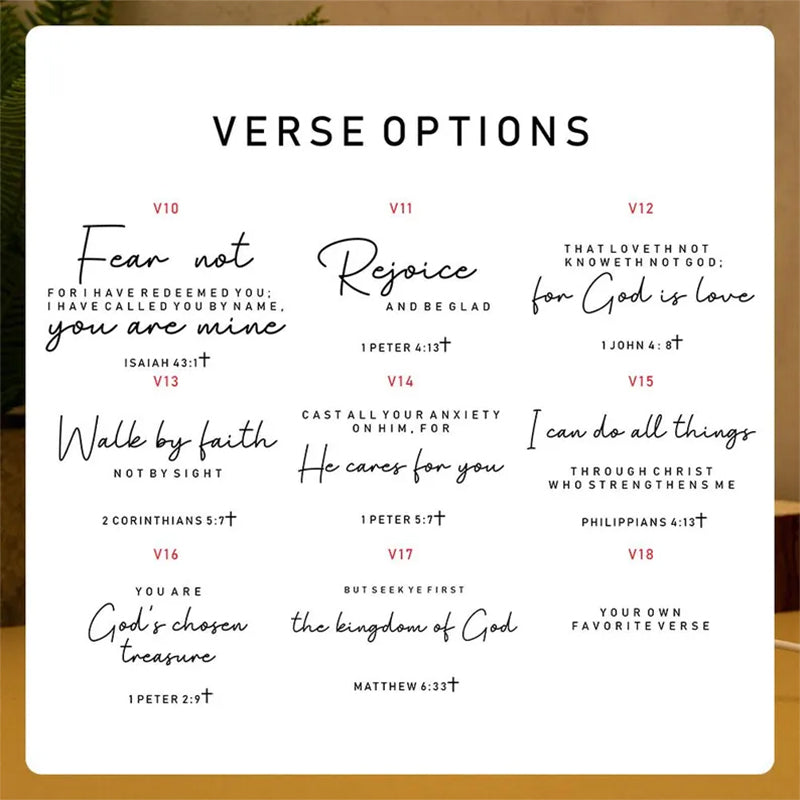 VERSE OPTIONS
V10
Fear not
FOR I HAVE REDEEMED YOU;
I HAVE CALLED YOU BY NAME,
you are mine
ISAIAH 43:1
V11
Rejoice
AND BE GLAD
1 PETER 4:13
V12
THAT LOVETH NOT
KNOWETH NOT GOD;
for God is love
1 JOHN 4: 8
V13
Walk by faith
NOT BY SIGHT
2 CORINTHIANS 5:7
V14
CAST ALL YOUR ANXIETY
ON HIM, FOR
He cares for you
1 PETER 5:7
V15
I can do all things
THROUGH CHRIST
WHO STRENGTHENS ME
PHILIPPIANS 4:13
V16
YOU ARE
God's chosen
treasure
1 PETER 2:9
V17
BUT SEEK YE FIRST
the kingdom of God
MATTHEW 6:33
V18
YOUR OWN
FAVORITE VERSE